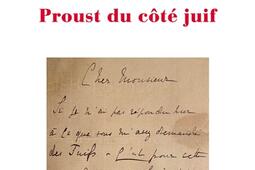 Proust du côté juif
Cher Monsieur
Si je n'ai pas répondu hier
à ce que vous m'avez demandé
des Juifs - c'est pour cette